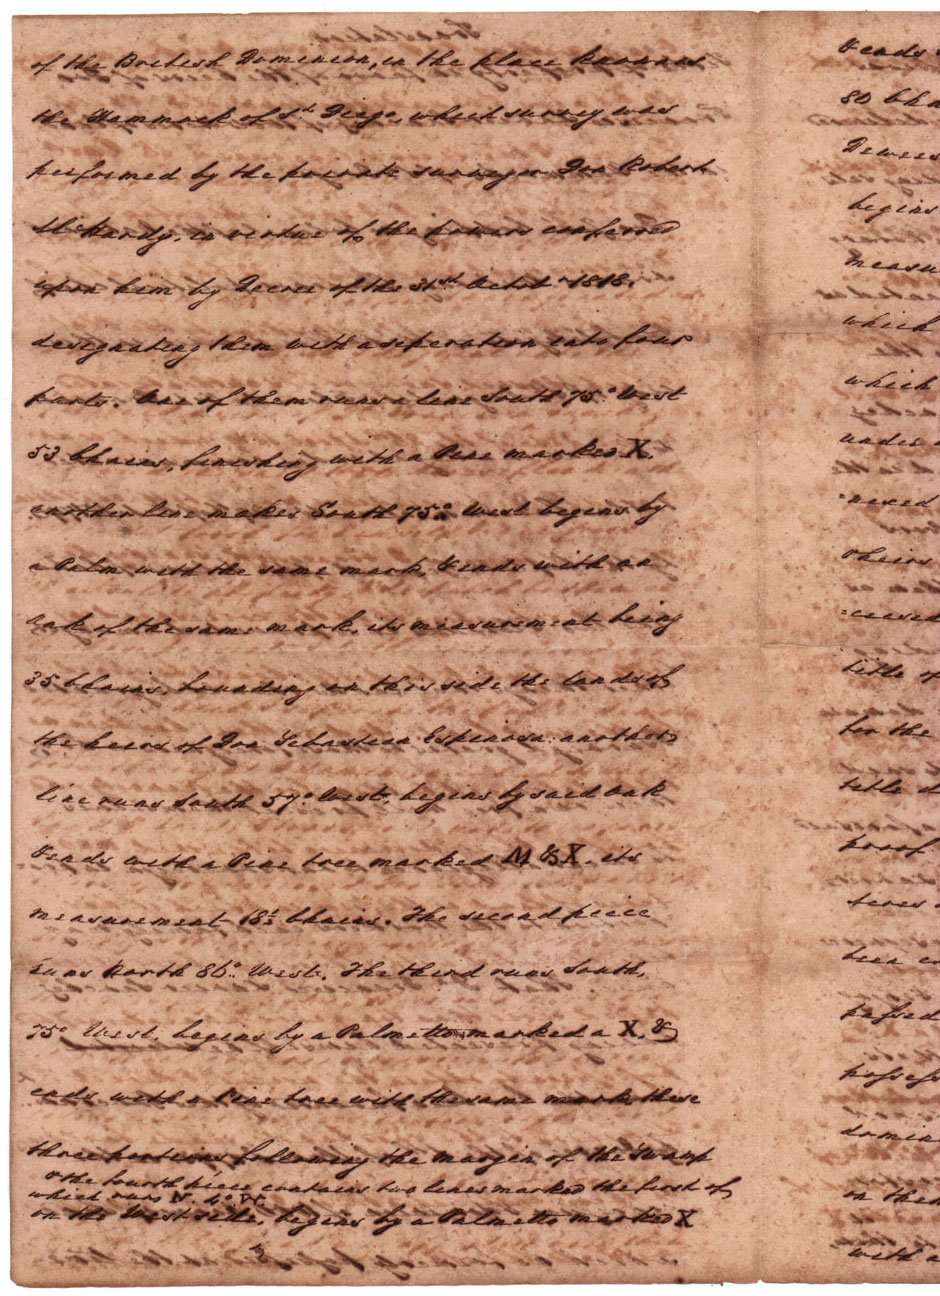 of the British Dominion, in the place known as
the Hammock of Sn Diego, which survey was
performed by the private surveyor Don Robert
McHardy, in virtue of the powers conferred
upon him by Decree of the 31st Octobr 1818.
designating them with a seperation into four
parts. One of them runs a line South 75° West
53 Chains, finishing with a Pine marked X,
another line makes South 75° West begins by
a Palm with the same mark, & ends with an
oak of the same mark, its measurement being
35 Chains, bounding on this side the lands of
the heirs of Don Sebastian Espinosa: another
line runs South 57° West, begins by said oak
& ends with a Pine tree marked M & X. its
measurement 18½ Chains. The second piece
runs North 86° West. The third runs South,
75° West, begins by a Palmetto marked a X, &
ends with a Pine tree with the same mark, these
three portions following the margin of the Swamp
& the fourth piece contains two lines marked the first of
which runs N. 4° W.
on the West side, begins by a Palmetto marked X
& ends
80 Cha
Dewees
begins
measu
which
which
under
=nexed
theirs
=ceased
title of
for the
title
proof
teres
been
passed
possess
domin
on the
with a